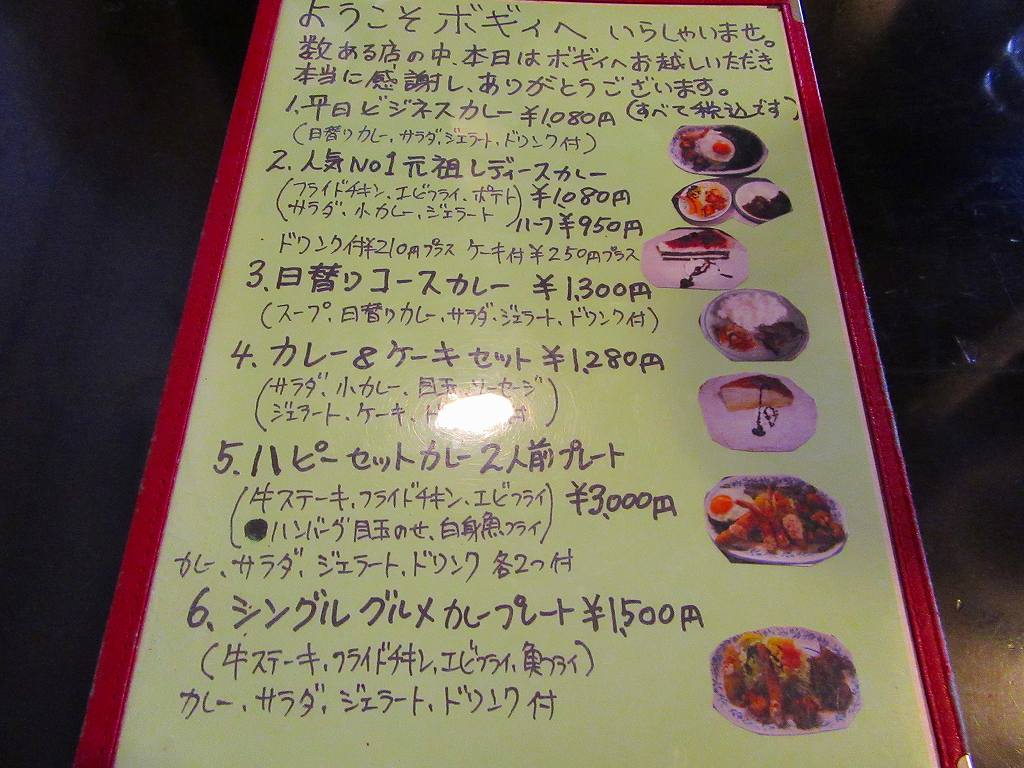 ようこそ ボギィへ いらしゃいませ。
数ある店の中、本日はボギィへお越しいただき
本当に感謝し、ありがとうございます。
1.平日ビジネスカレー ¥1,080円 (すべて税込です)
(日替りカレー、サラダ、ジェラート、ドリンク付)
2.人気No1元祖レディースカレー
(フライドチキン、エビフライ、ポテト) ¥1,080円
サラダ、小カレー、ジェラート ハーフ¥950円
ドリンク付¥210円プラス ケーキ付¥250円プラス
3.日替りコースカレー ¥1,300円
(スープ、日替りカレー、サラダ、ジェラート、ドリンク付)
4.カレー&ケーキセット ¥1,280円
(サラダ、小カレー、目玉、ソーセージ
ジェラート、ケーキ、 付)
5.ハピーセットカレー2人前プレート
(牛ステーキ、フライドチキン、エビフライ) ¥3,000円
ハンバーグ目玉のせ、白身魚フライ
カレー、サラダ、ジェラート、ドリンク 各2つ付
6.シングルグルメカレープレート ¥1,500円
(牛ステーキ、フライドチキン、エビフライ、魚フライ)
カレー、サラダ、ジェラート、ドリンク付